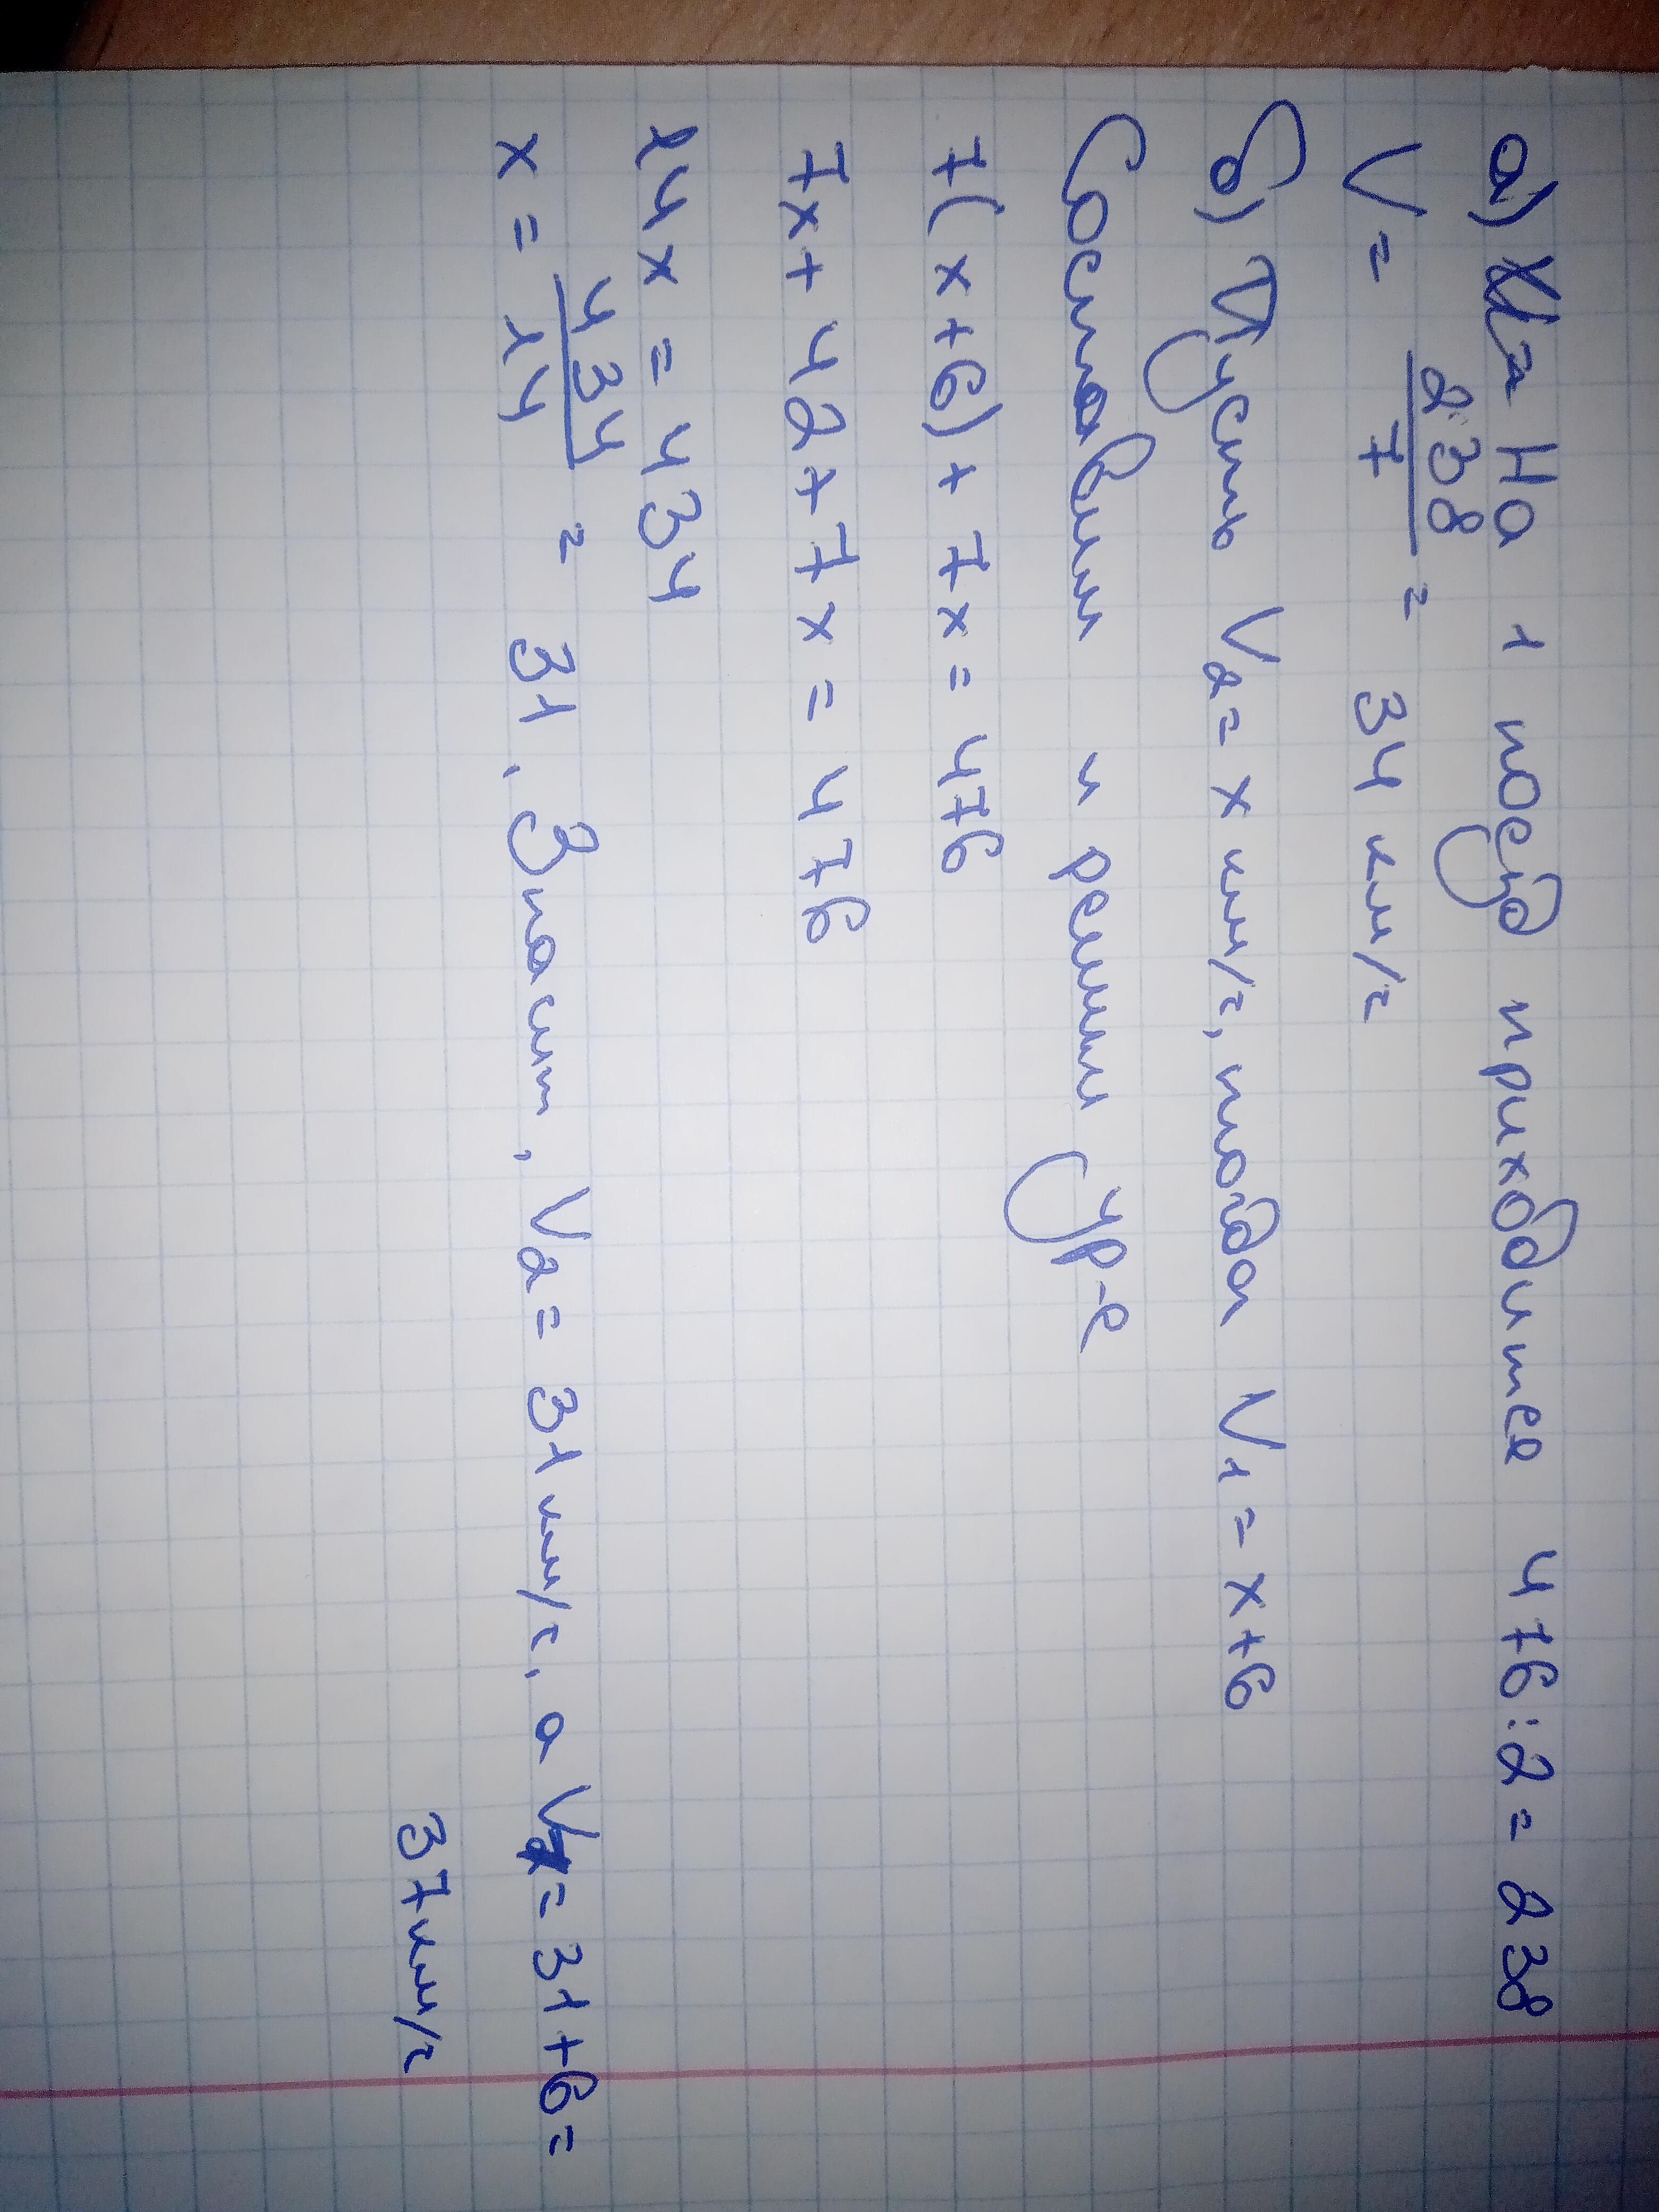 а) На 1 поезд приходится 476:2 = 238
V = 238/7 = 34 км/ч
б) Пусть V2 = x км/ч, тогда V1 = x+6
Составим и решим ур-е
7(x+6) + 7x = 476
7x + 42 + 7x = 476
14x = 434
x = 434/14 = 31. Значит, V2 = 31 км/ч, а V1 = 31+6 =
37 км/ч